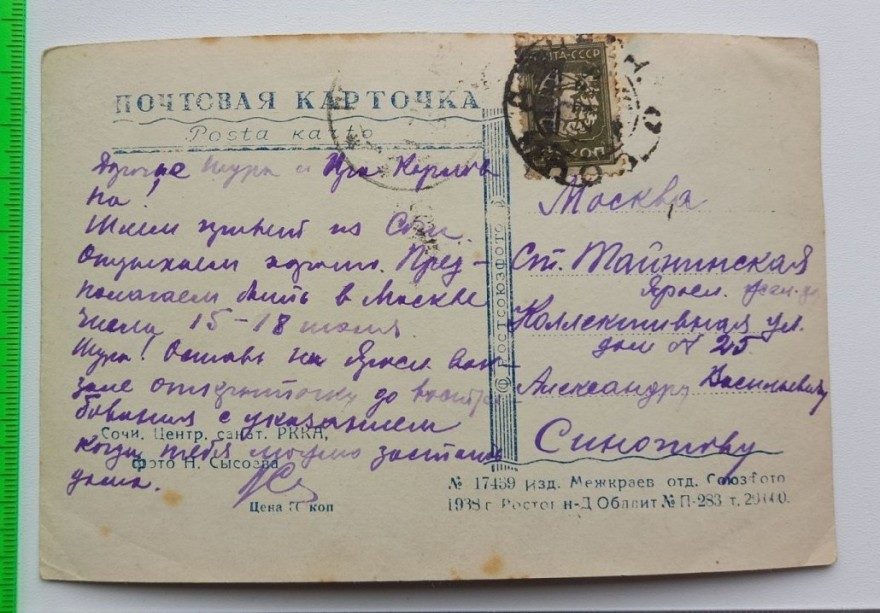 ПОЧТОВАЯ КАРТОЧКА
Posta karto
Дорогие Шура и Карлов
на!
Шлем привет из Сочи.
Отдыхаем хорошо. Пред-
полагаем быть в Москве
числа 15-18 июля
Шура! Оставь на Яросл. вок
зале открыточку до востре
бования с указанием
когда тебя можно застать
дома.
Сочи. Центр. санат. РККА,
фото Н. Сысоева
Цена коп
ПОЧТА-СССР
© Ростсоюзфото
Москва
Ст. Тайнинская
Яросл.
Коллективная ул.
дом № 25
Александру Васильевичу
Синотову
№ 17439 Изд. Межкраев отд. Союзфото
1938 г Ростов н-Д Обллит № П-283 т.